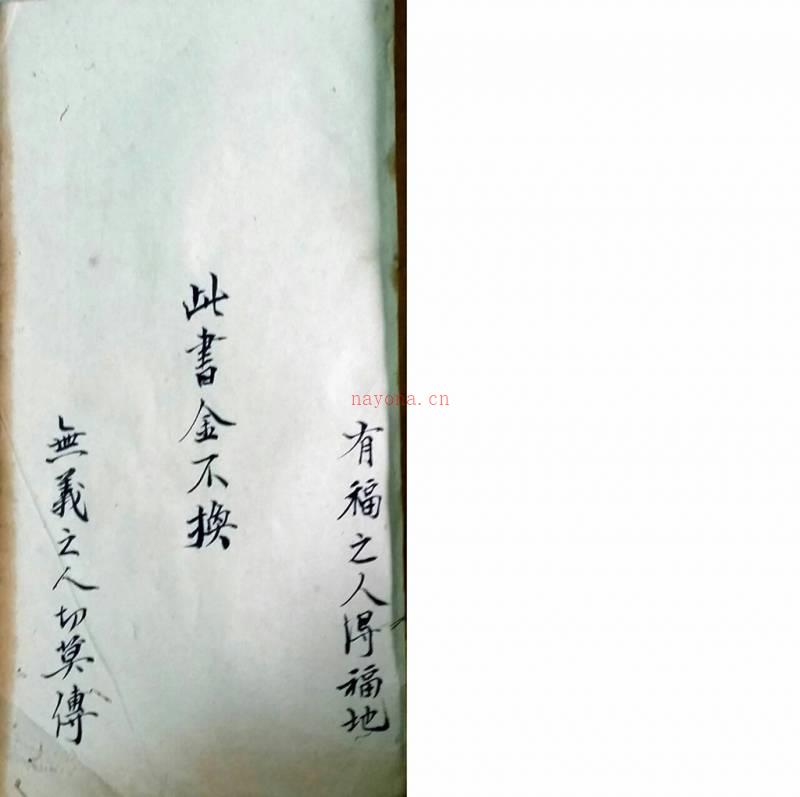 有福之人得福地
此書金不換
無義之人切莫傳
nayona.cn